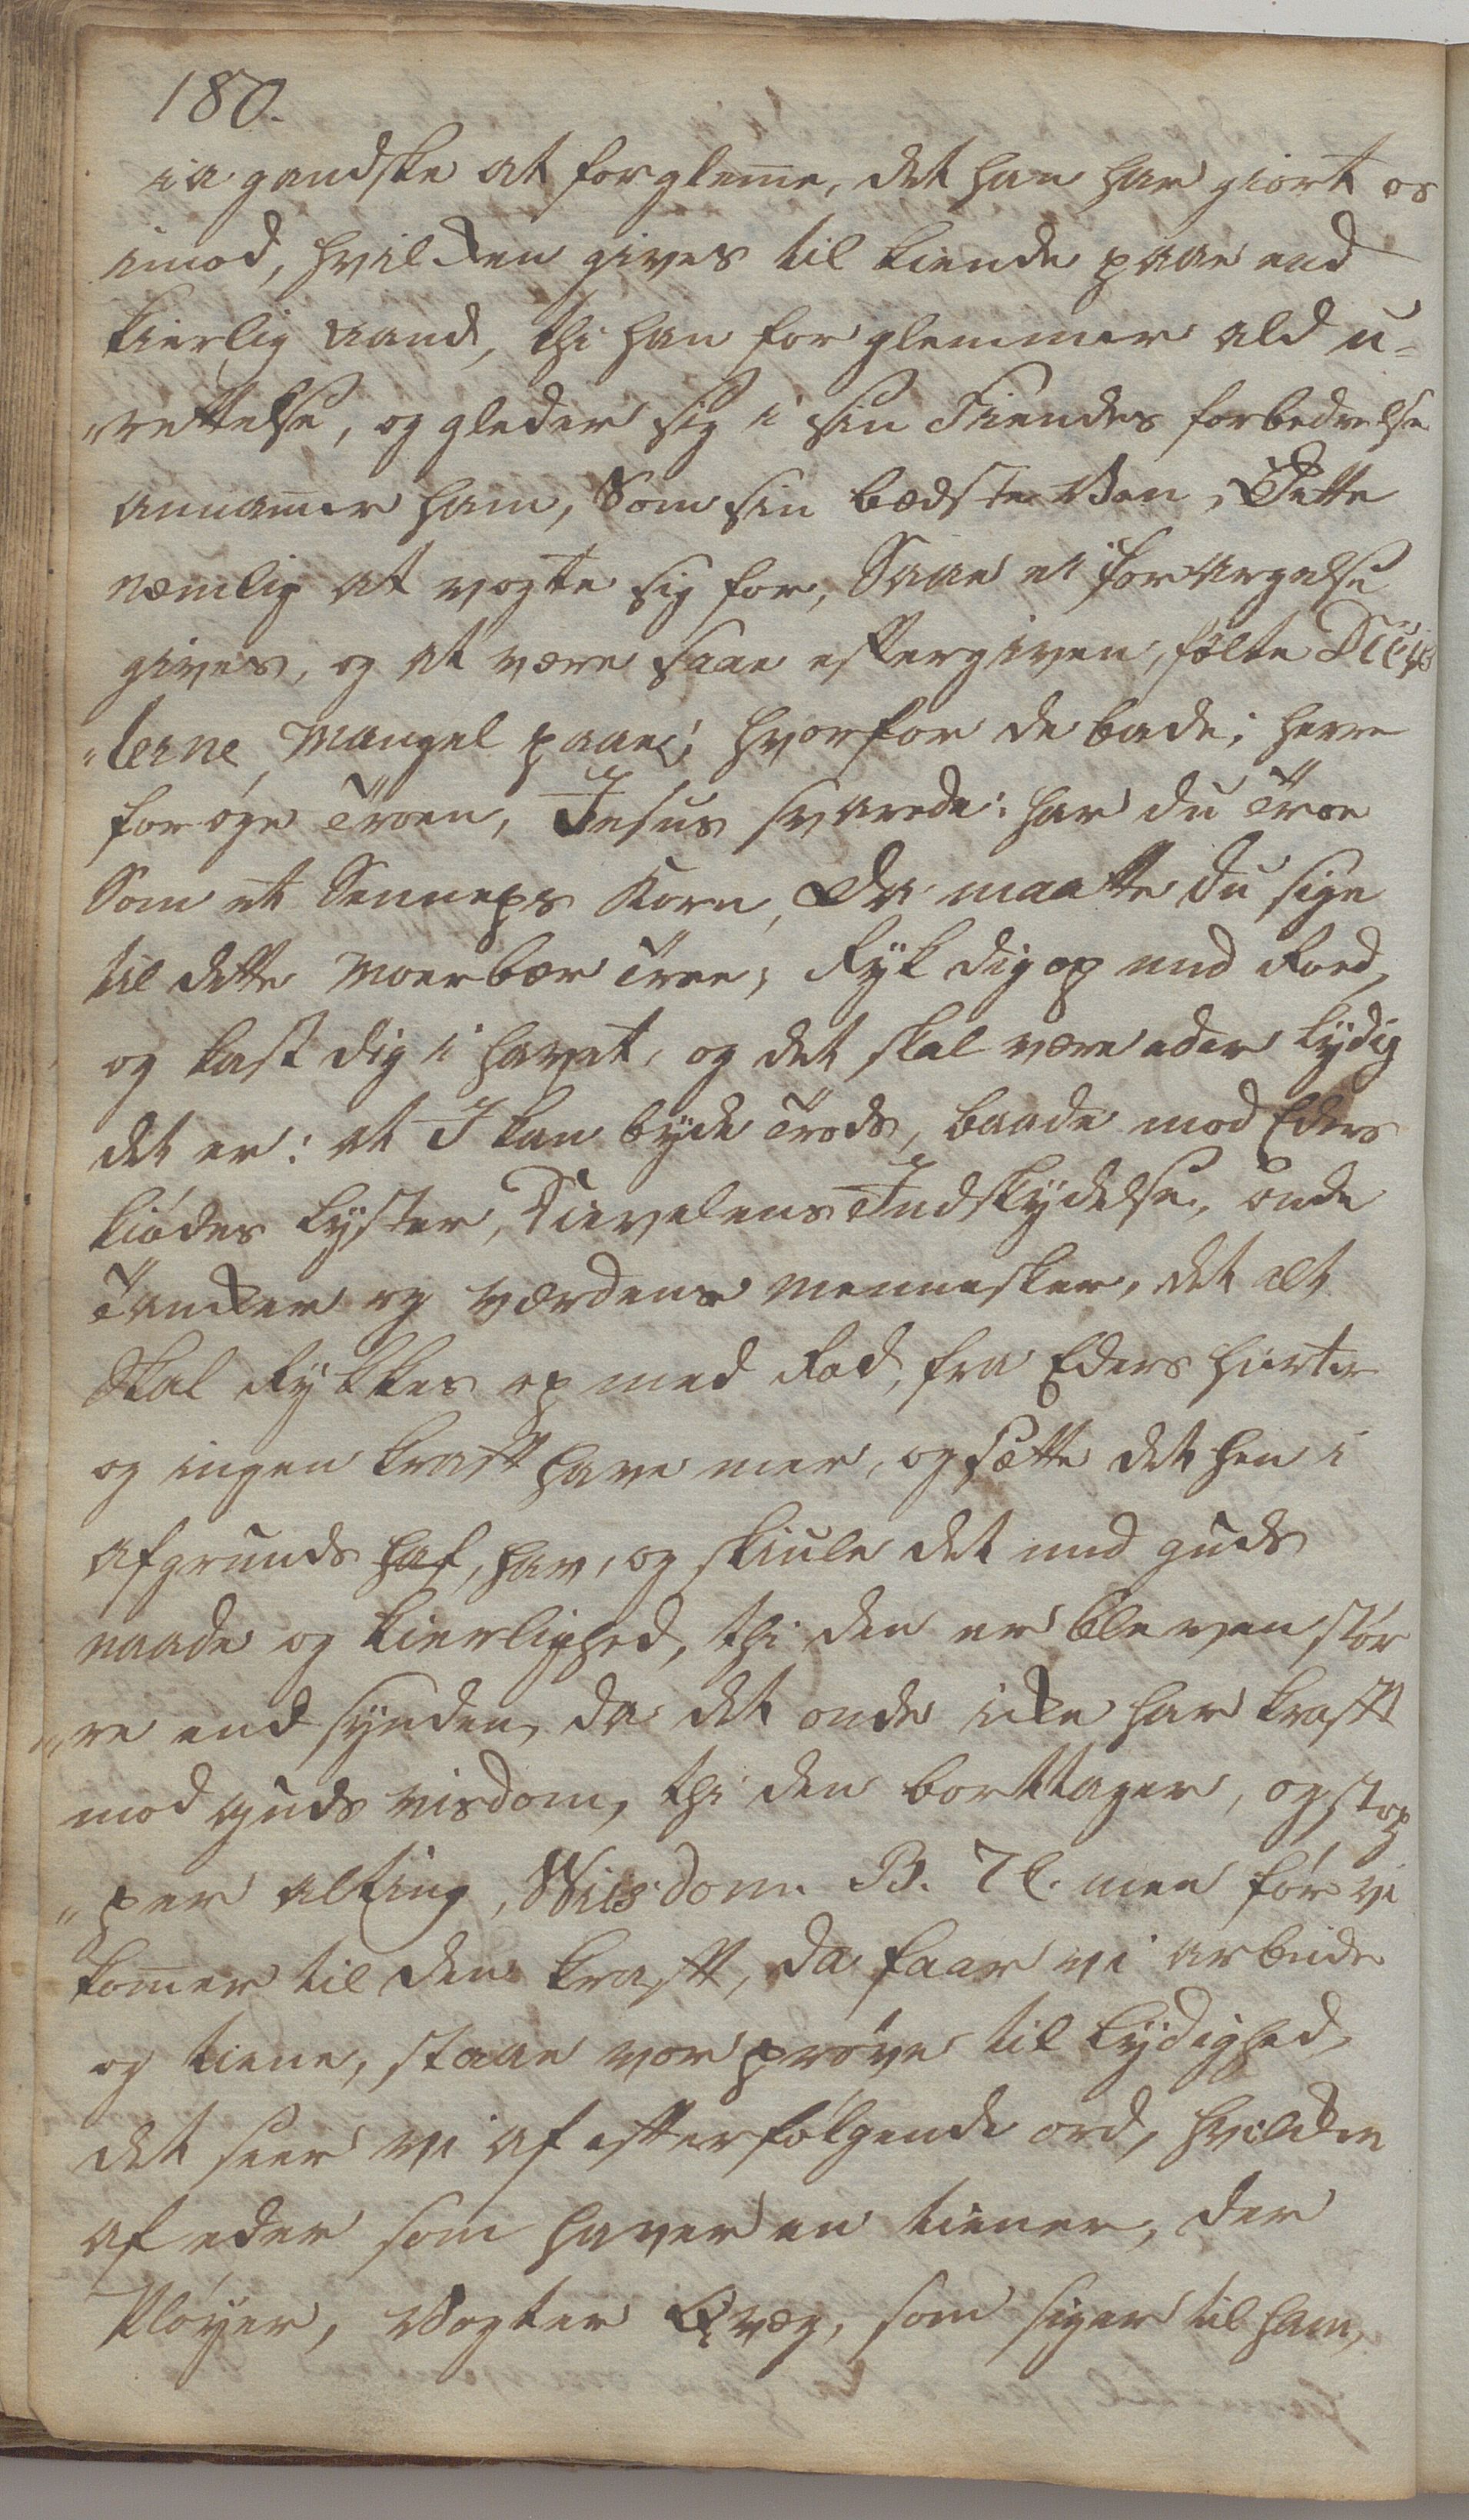 180.
ia gandske at forglem̅e, det han har giort os
imod, hvilcken gives til kiende paae end
kierlig Aand, thi han forglemmer ald u-
„rettelse, og gleder sig i sin Fiendes forbedrelse
annam̅er ham, Som sin bædste Ven, Dette
nemlig at vogte sig for, Saae ei forargelse
gives, og at være saae eftergiven, følte Disip
„lerne Mangel paae; hvorfor de bade; herre
forøge Troen, Jesus svarede: har du Troe
Som et Senneps Korn, Da maatte du sige
til dette Moerbær Træe; Ryk dig op med Roed,
og kast dig i havet, og det skal være eder lydig
det er: at I kan byde Trods, baade mod Eders
kiødes lyster, Dievelens Indskydelse, onde
Tancker og verdens Mennesker, det alt
Skal Rykkes op med Rod, fra Eders hierter
og ingen kraft have mer, og sætte det hen i
afgrunds haf, hav, og skiule det med guds
naade og kierlighed, thi den er bleven stør
„re end synden, da det onde icke har kraft
mod guds visdom, thi den borttager, og stop
„per alting, Viisdom. B. 7 C. men før vi
kom̅er til den kraft, da faar vi arbeide
og tiene, staae vor prøve til lydighed,
det seer vi af efterfølgende ord, hvilcken
af eder som haver en tiener, der
Pløyer, Vogter Qvæg, som siger til ham,